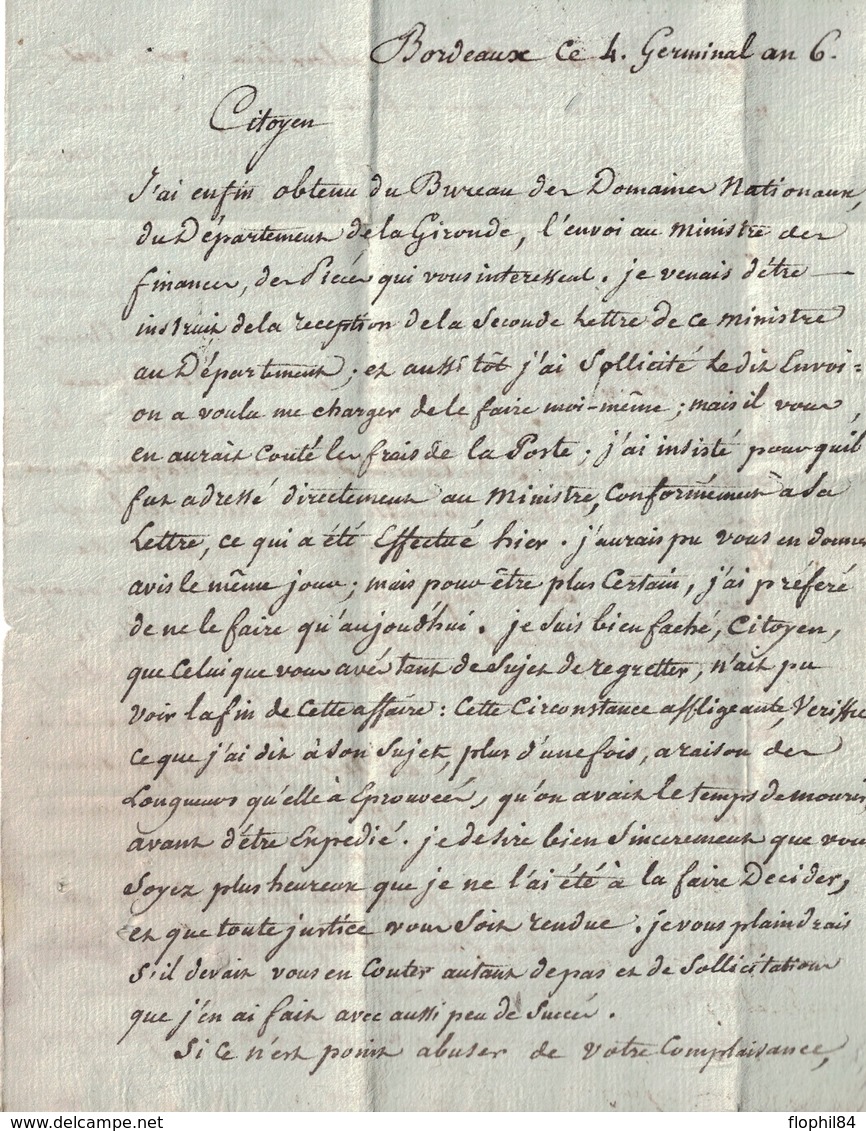 Bordeaux ce 4. Germinal an 6.
Citoyen
J'ai enfin obtenu du Bureau des Domaines Nationaux,
du Département de la Gironde, l'envoi au Ministre des
finances, des Pieces qui vous interessent. je venais d'être
instruit de la reception de la Seconde Lettre de ce Ministre
au Département; et aussi tôt j'ai Sollicité Ledit Envoi =
on a voulu me charger de le faire moi-même; mais il vous,
en aurait couté les frais de la Poste; j'ai insisté pour quil
fut adressé directement au Ministre, Conformément à Sa
Lettre, ce qui a été Effectué hier. j'aurais pu vous en donner
avis le même jour; mais pour être plus Certain, j'ai préferé
de ne le faire qu'aujourd'hui. je Suis bien faché, Citoyen,
que Celui que vous avés tant de Sujet de regretter, n'ait pu
voir la fin de Cette affaire: Cette Circonstance affligeante, Veriffie
ce que j'ai dit à Son Sujet, plus d'une fois, a raison des
Longueurs qu'elle à Eprouveés, qu'on avait le temps de mourir,
avant d'être Expedié. je desire bien Sincerement que vous
Soyez plus heureux que je ne l'ai été à la faire Decider,
et que toute justice vous Soit rendue. je vous plaindrais
S'il devait vous en Couter autant de pas et de Sollicitations
que j'en ai fait avec aussi peu de Succés.
Si ce n'est point abuser de Votre Complaisance,
flophil84